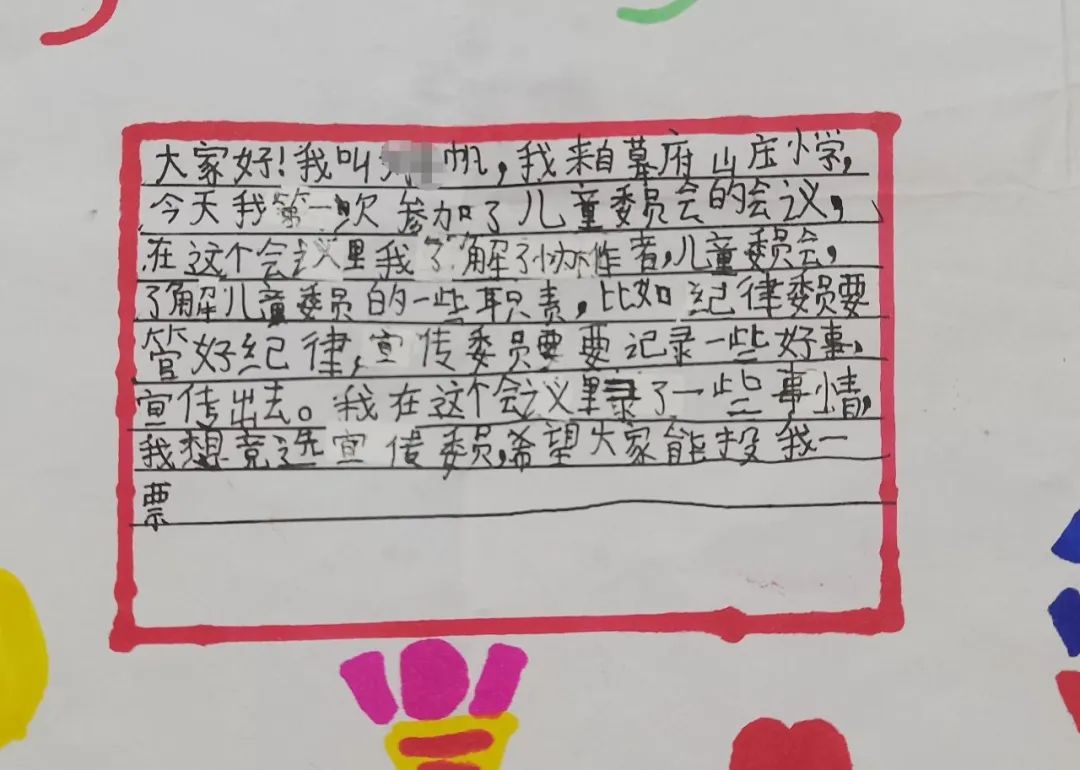 大家好!我叫帆,我来自幕府山庄小学,
今天我第一次参加了儿童委员会的会议,
在这个会议里我了解了协作者,儿童委员会,
了解儿童委员的一些职责,比如纪律委员要
管好纪律,宣传委员要要记录一些好事,
宣传出去。我在这个会议里录了一些事情,
我想竞选宣传委员,希望大家能投我一
票